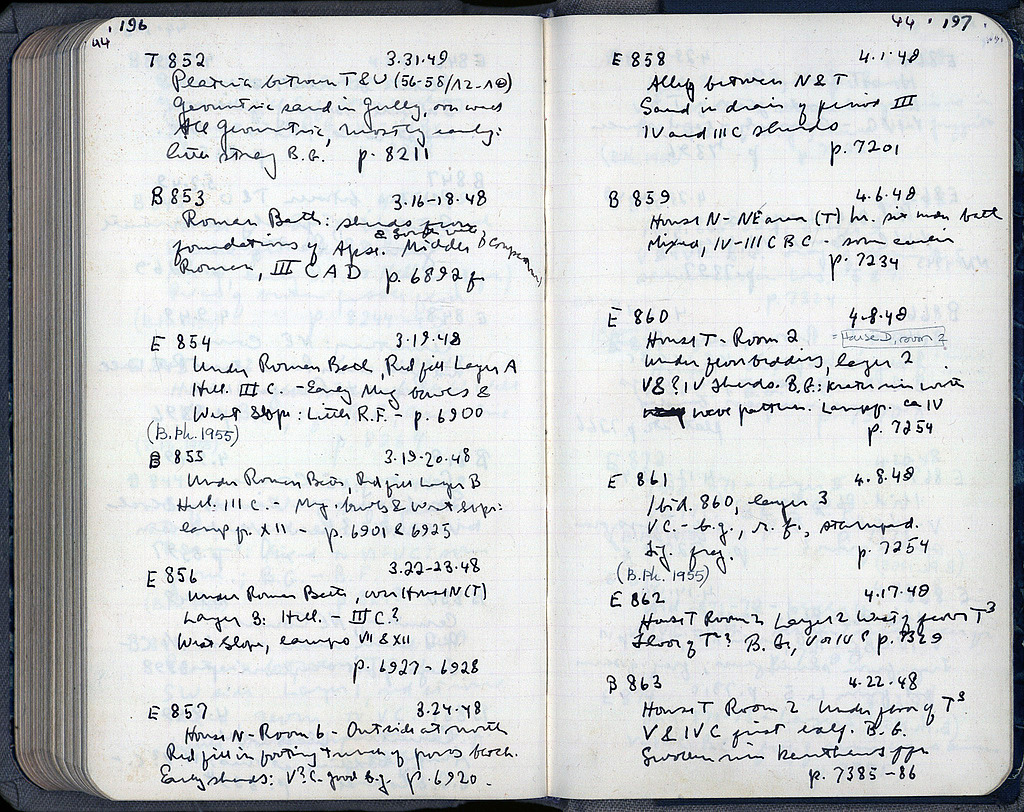 44 · 196
T 852 3.31.48
Plateia between T & U (56-58/12-10)
Geometric sand in gully, on west
All Geometric, mostly early:
little stray B.G. p. 8211
B 853 3.16-18.48
Roman Bath: sherds from
foundations of Apse. Middle
Roman, III C A D p. 6892 f
E 854 3.19.48
Under Roman Bath, Red fill Layer A
Hell. III C. - Early Meg bowls &
West Slope: Little R.F. - p. 6900
(B.Ph. 1955)
B 855 3.19-20.48
Under Roman Bath, Red fill Layer B
Hell. III C. - Meg. bowls & West Slope:
lamp fr. XII - p. 6901 & 6925
E 856 3.22-23.48
Under Roman Bath, over House N (T)
Layer 3: Hell. III C?
West Slope, lamps VII & XII
p. 6927-6928
E 857 3.24.48
House N - Room 6 - Outside at north
Red fill in footing trench of poros block.
Early sherds: V? C. good b.g. p. 6920.
44 · 197
E 858 4.1.48
Alley between N & T
Sand in drain of period III
IV and III C sherds
p. 7201
B 859 4.6.48
House N - NE area (T)
Mixed, IV-III C BC - some earlier
p. 7234
E 860 4.8.48
House T - Room 2. = House D, room 2
Under floor bedding, layer 2
V & ? IV sherds. B.G.: krater rim with
wave pattern. Lamp fr. ca IV
p. 7254
E 861 4.8.48
Ibid. 860, layer 3
V C. - b.g., r.f., stamped.
Fig. frag. p. 7254
(B.Ph. 1955)
E 862 4.17.48
House T Room 2 Layer 2 West of poros T³
Floor of T²? B.G., V or IV? p. 7329
B 863 4.22.48
House T Room 2 Under floor of T³.
V & IV C first half. B.G.
p. 7385-86